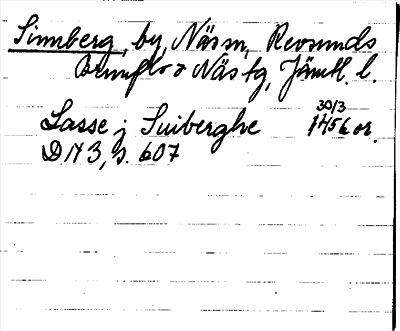 Sinnberg, by, Näsm, Revsunds
Brunflo o Näs tg, Jämtl. l.
Lasse j Suiberghe 30/3 1456 or.
DN 3, s. 607